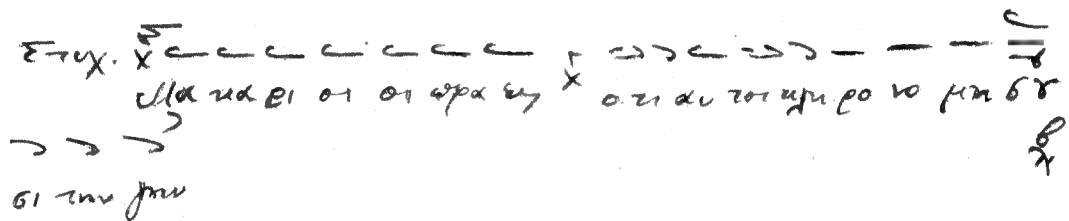 Στιχ. Μα κα ρι οι οι πρα εις ο τι αυ τοι κλη ρο νο μη σου
σι την γην